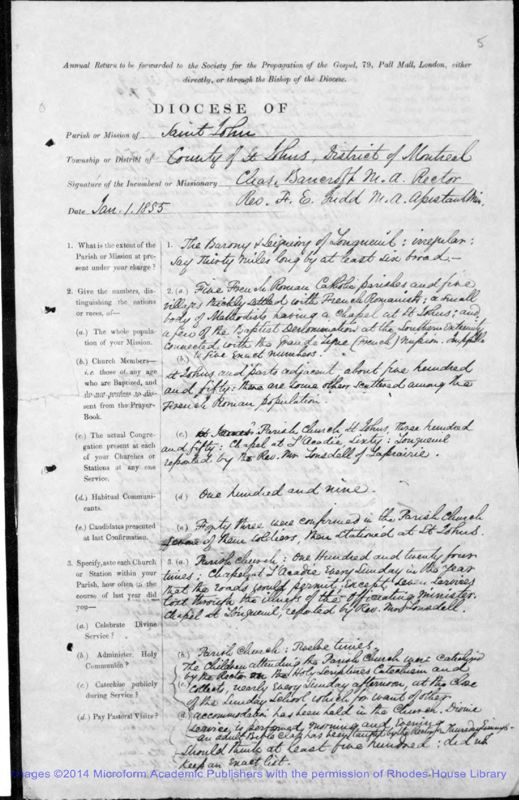 5
Annual Return to be forwarded to the Society for the Propagation of the Gospel, 79, Pall Mall, London, either
directly, or through the Bishop of the Diocese.
DIOCESE OF
Parish or Mission of Saint John
Township or District of County of St Johns, District of Montreal
Signature of the Incumbent or Missionary Chas. Bancroft M.A. Rector
Rev. F. E. Judd M.A. Assistant Min.
Date Jan. 1. 1855
1. What is the extent of the
Parish or Mission at pre-
sent under your charge?
1. The Barony & Seigniory of Longueuil; irregular:
say thirty miles long by at least six broad.
2. Give the numbers, dis-
tinguishing the nations
or races, of—
(a.) The whole popula-
tion of your Mission.
(b.) Church Members—
i.e. those of any age
who are Baptized, and
do not profess to dis-
sent from the Prayer-
Book.
2. (a) Five French Roman Catholic parishes and five
villages thickly settled with French Romanists; a small
body of Methodists having a Chapel at St Johns; and
a few of the Baptist Denomination at the Southern Extremity
connected with the Grande Ligne (French) Mission. Impossible
to give exact numbers.
(b)
St Johns and parts adjacent about five hundred
and fifty: there are some others scattered among the
French Roman population.
(c.) The actual Congre-
gation present at each
of your Churches or
Stations at any one
Service.
(c) Parish Church St Johns, three hundred
and fifty: Chapel at L'Acadie Sixty: Longueuil
reported by the Rev. Mr Lonsdell of Laprairie.
(d.) Habitual Communi-
cants.
(d) One hundred and nine.
(e.) Candidates presented
at last Confirmation.
(e) Eighty three were confirmed in the Parish Church
some of them soldiers, then stationed at St Johns.
3. Specify, as to each Church
or Station within your
Parish, how often in the
course of last year did
you—
(a.) Celebrate Divine
Service?
3. (a) Parish Church: One Hundred and twenty four
times: Chapel at L'Acadie every Sunday in the Year
that the roads would permit, except seven services
lost through the illness of the Officiating Minister.
Chapel at Longueuil, reported by Rev. Mr Lonsdell.
(b.) Administer Holy
Communion?
(b) Parish Church: Twelve times.
(c.) Catechise publicly
during Service?
(c) The Children attending the Parish Church were catechized
by the Rector on the Holy Scriptures Catechism and
Collects, nearly every Sunday afternoon, at the close
of the Sunday School which for want of other
accommodation has been held in the Church. Divine
Service is performed morning and evening
an adult Bible Class has been taught by the Rector on Thursday Evenings.
(d.) Pay Pastoral Visits?
(d) Should think at least five hundred; did not
keep an exact list.
Images ©2014 Microform Academic Publishers with the permission of Rhodes House Library